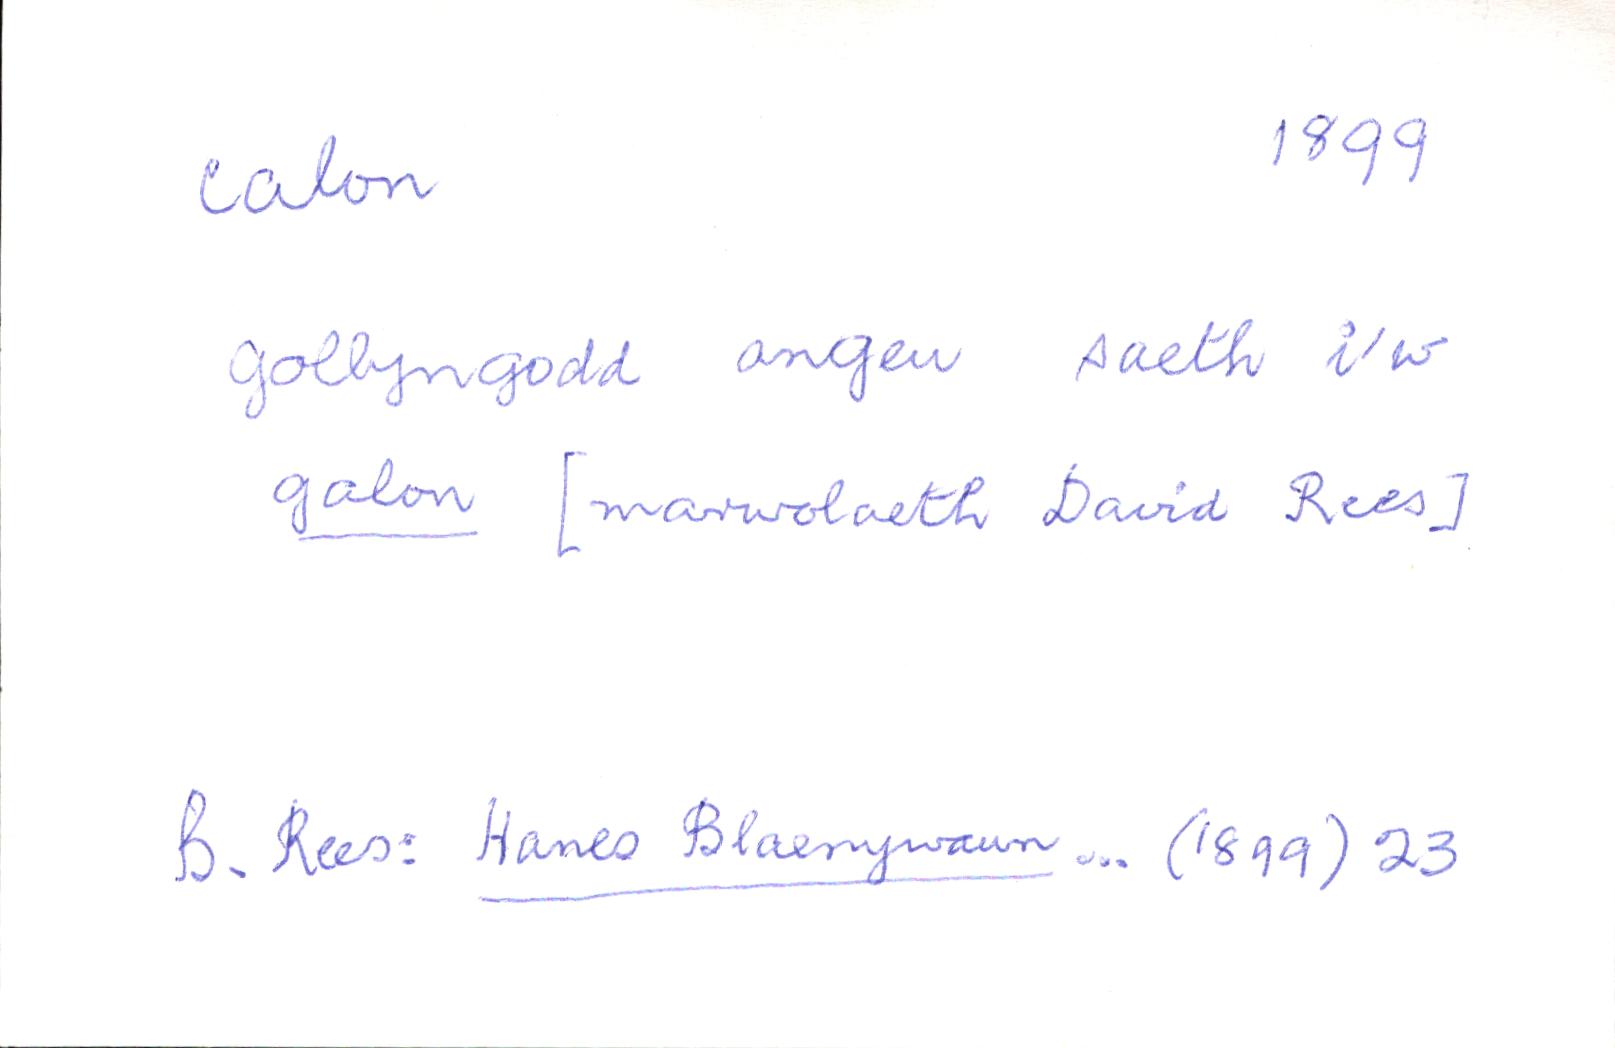 calon 1899
gollyngodd angeu saeth i'w
galon [marwolaeth David Rees]
B. Rees: Hanes Blaenywaun ... (1899) 23